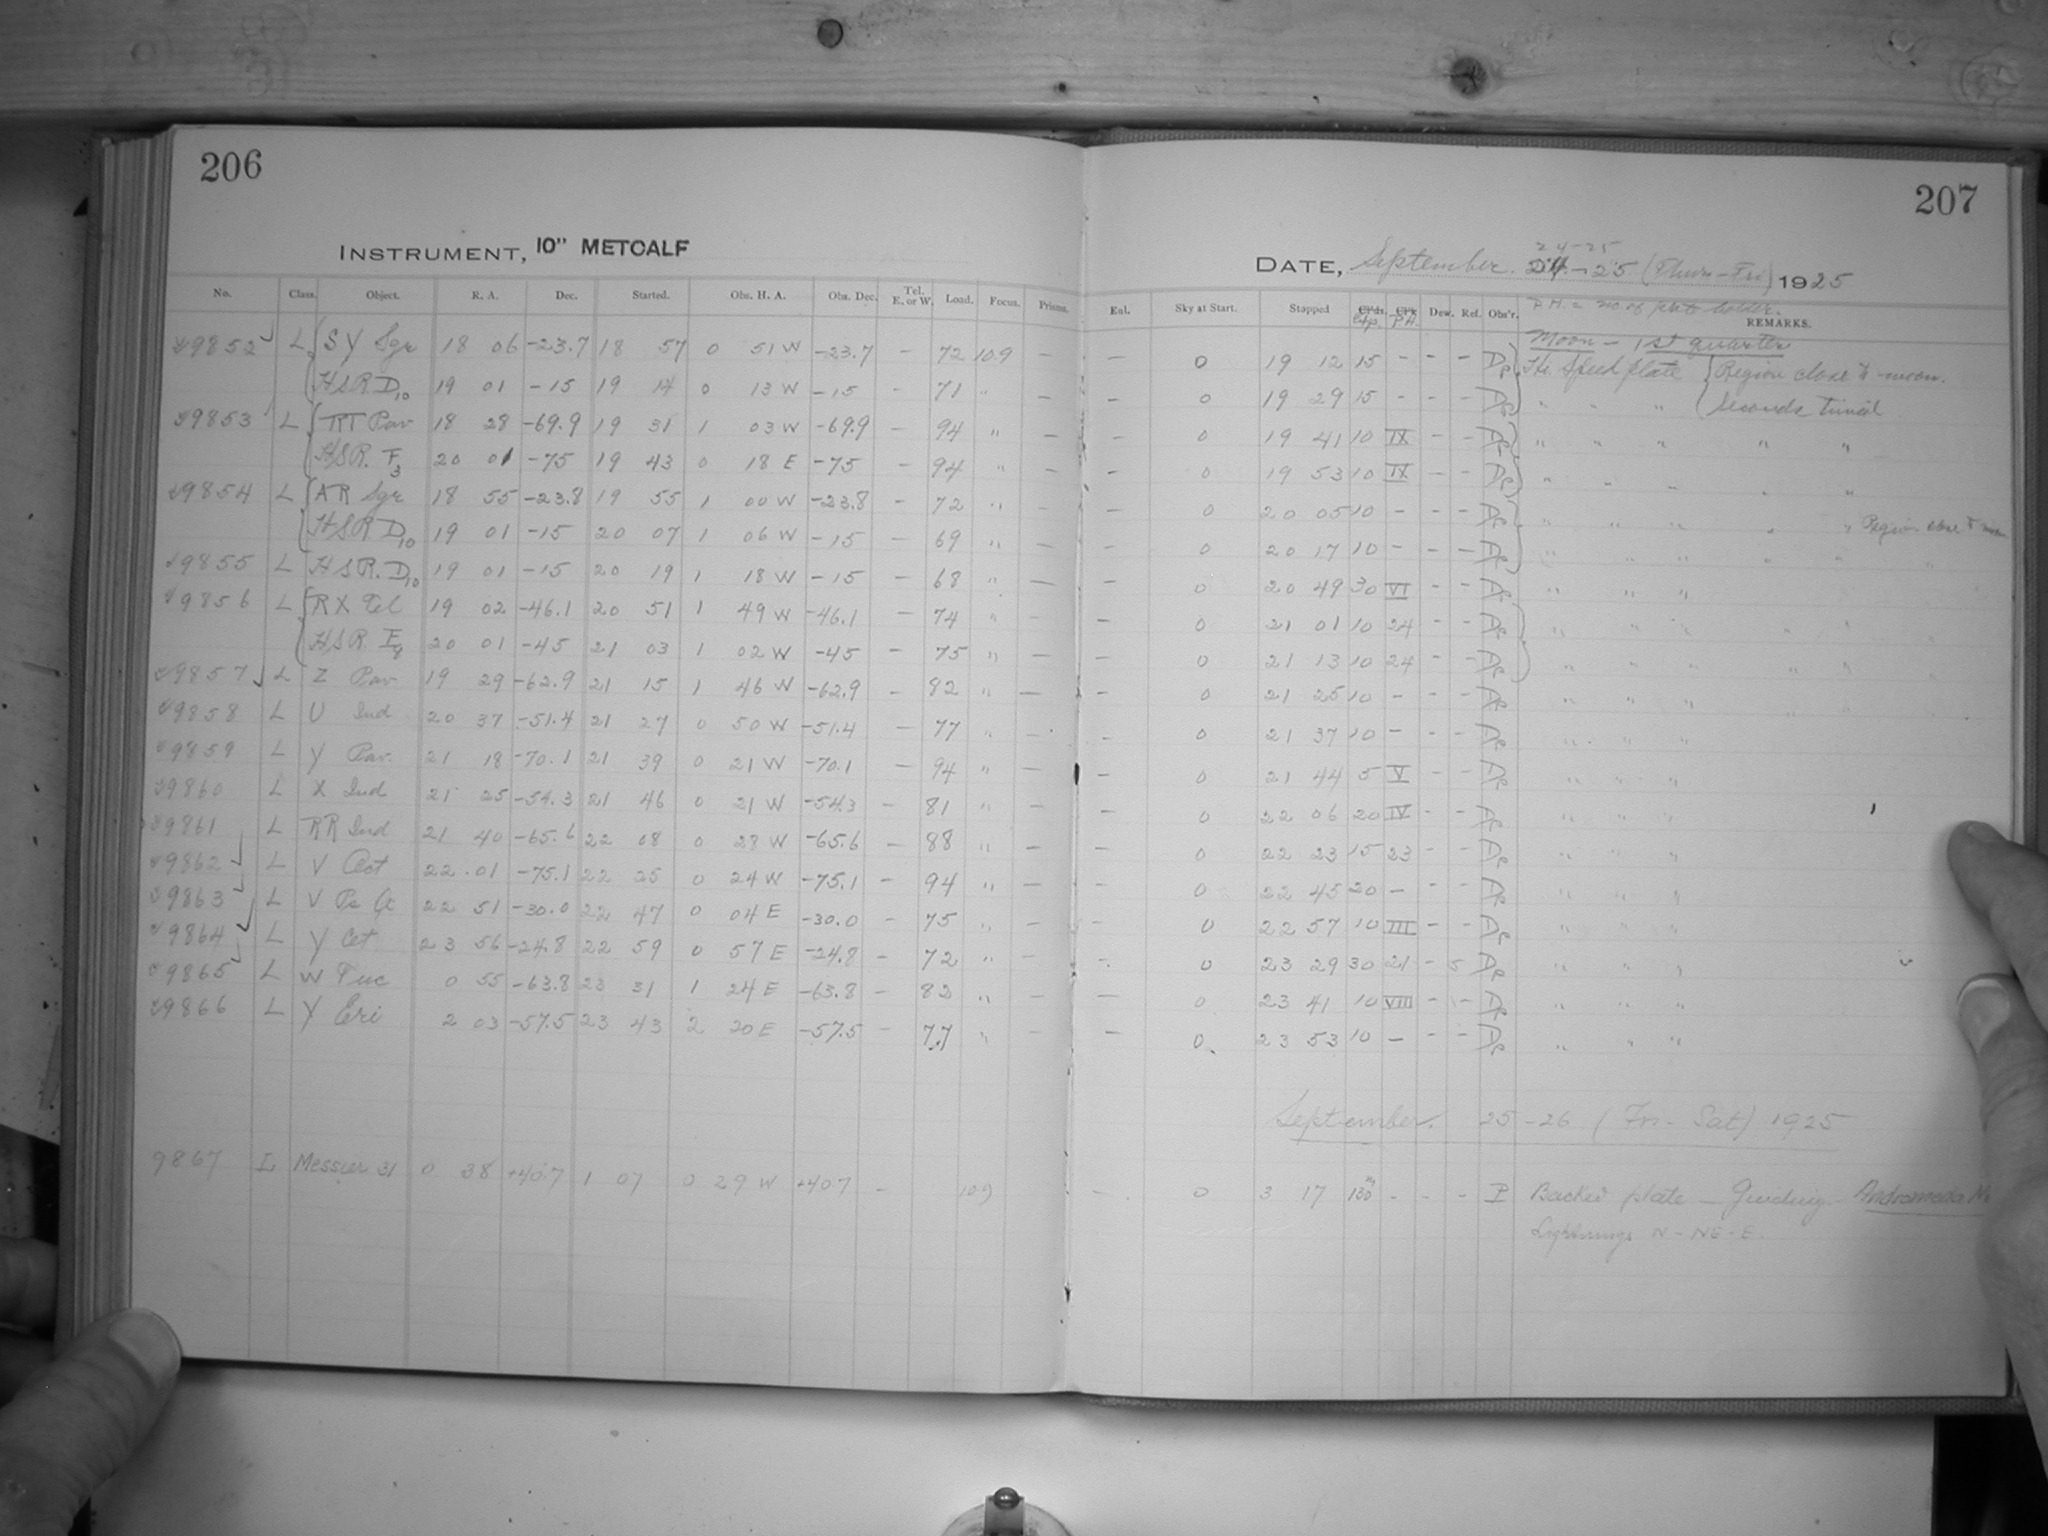 206
207
INSTRUMENT, 10" METCALF
DATE, September 24-25 (Thurs-Fri) 1925
24-25
No. Class. Object. R. A. Dec. Started. Obs. H. A. Obs. Dec. Tel. E. or W. Load. Focus. Prisms. Enl. Sky at Start. Stopped Exp. P.H. Dew. Ref. Obs'r. REMARKS.
P.H. = no. of plate holder.
Moon - 1st quarter
9852 L SY Sgr 18 06 -23.7 18 57 0 51 W -23.7 - 72 10.9 - - 0 19 12 15 - - - Hi Speed plate Region close to moon.
HSR D10 19 01 -15 19 14 0 13 W -15 - 71 " - - 0 19 29 15 - - - " " " Seconds
9853 L RT Pav 18 28 -69.9 19 31 1 03 W -69.9 - 94 " - - 0 19 41 10 IX - - " " " " "
HSR. F3 20 01 -75 19 43 0 18 E -75 - 94 " - - 0 19 53 10 IX - - " " " " "
9854 L AR Sgr 18 55 -23.8 19 55 1 00 W -23.8 - 72 " - - 0 20 05 10 - - - " " " " " Region close to moon
HSR D10 19 01 -15 20 07 1 06 W -15 - 69 " - - 0 20 17 10 - - - " " " " "
9855 L HSR. D10 19 01 -15 20 19 1 18 W -15 - 68 " - - 0 20 49 30 VI - - " " "
9856 L RX Tel 19 02 -46.1 20 51 1 49 W -46.1 - 74 " - - 0 21 01 10 24 - - " " " " "
HSR. 20 01 -45 21 03 1 02 W -45 - 75 " - - 0 21 13 10 24 - - " " " " "
9857 L Z Pav 19 29 -62.9 21 15 1 46 W -62.9 - 82 " - - 0 21 25 10 - - - " " "
9858 L U Ind 20 37 -51.4 21 27 0 50 W -51.4 - 77 " - - 0 21 37 10 - - - " " "
9859 L Y Pav. 21 18 -70.1 21 39 0 21 W -70.1 - 94 " - - 0 21 44 5 V - - " " "
9860 L X Ind 21 25 -54.3 21 46 0 21 W -54.3 - 81 " - - 0 22 06 20 IV - - " " "
9861 L RR Ind 21 40 -65.6 22 08 0 28 W -65.6 - 88 " - - 0 22 23 15 23 - - " " "
9862 L V Oct 22 01 -75.1 22 25 0 24 W -75.1 - 94 " - - 0 22 45 20 - - - " " "
9863 L V Ps 22 51 -30.0 22 47 0 04 E -30.0 - 75 " - - 0 22 57 10 III - - " " "
9864 L Y Cet 23 56 -24.8 22 59 0 57 E -24.8 - 72 " - - 0 23 29 30 21 - 5 " " "
9865 L W Tuc 0 55 -63.8 23 31 1 24 E -63.8 - 82 " - - 0 23 41 10 VIII - - " " "
9866 L Y Eri 2 03 -57.5 23 43 2 20 E -57.5 - 77 " - - 0 23 53 10 - - - " " "
September. 25-26 (Fri-Sat) 1925
9867 L Messier 31 0 38 +40.7 1 07 0 29 W +40.7 - 10.9 - 0 3 17 130m - - - P Backed plate - Guiding - Andromeda
Lightnings N - NE - E.